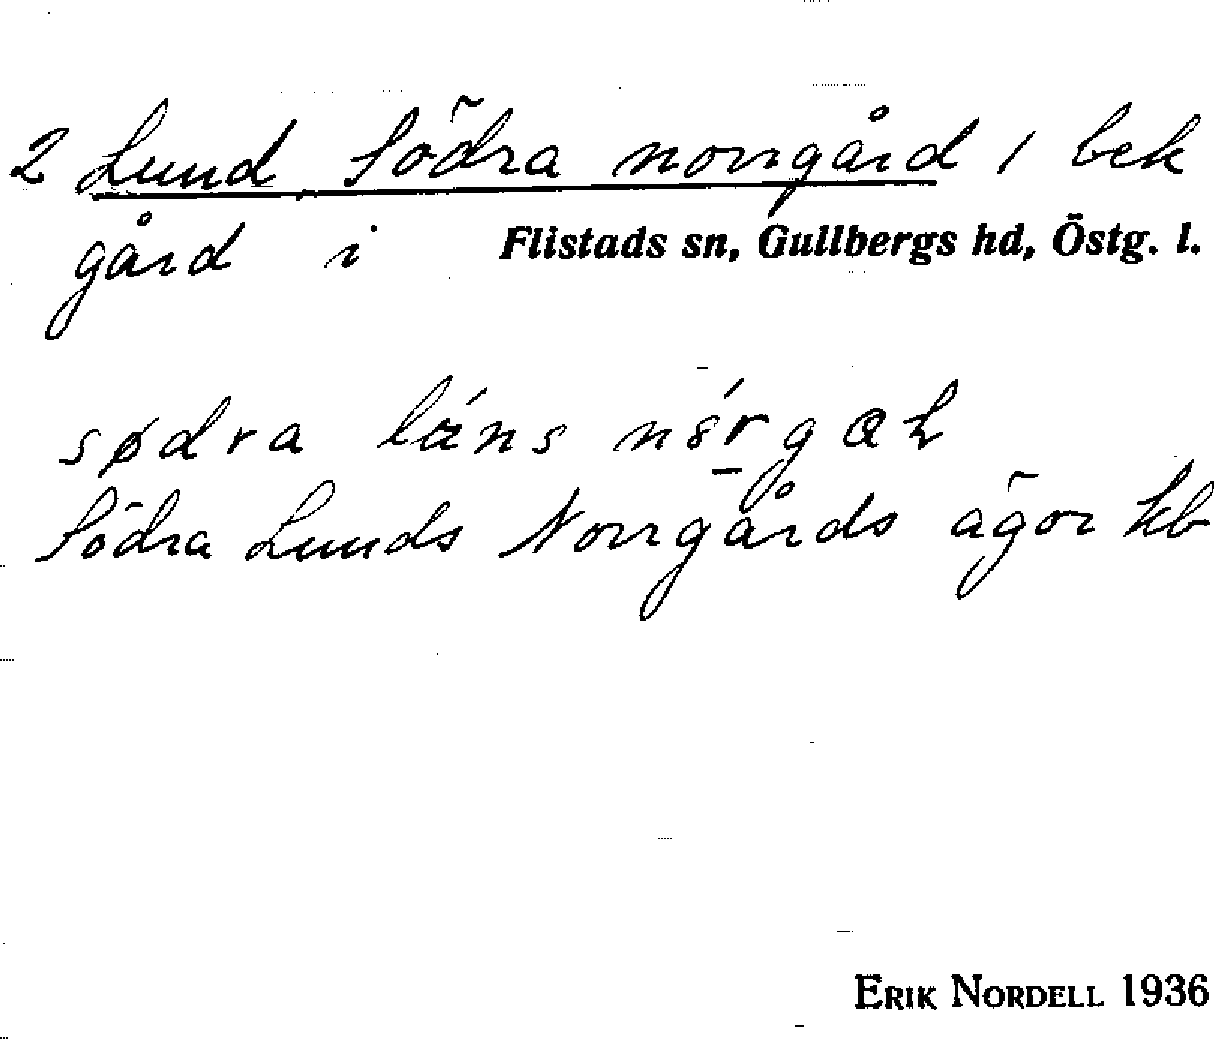 2 Lund Södra norrgård / bek
gård i Flistads sn, Gullbergs hd, Östg. l.
södra
Södra Lunds Norrgårds ägor kb
ERIK NORDELL 1936